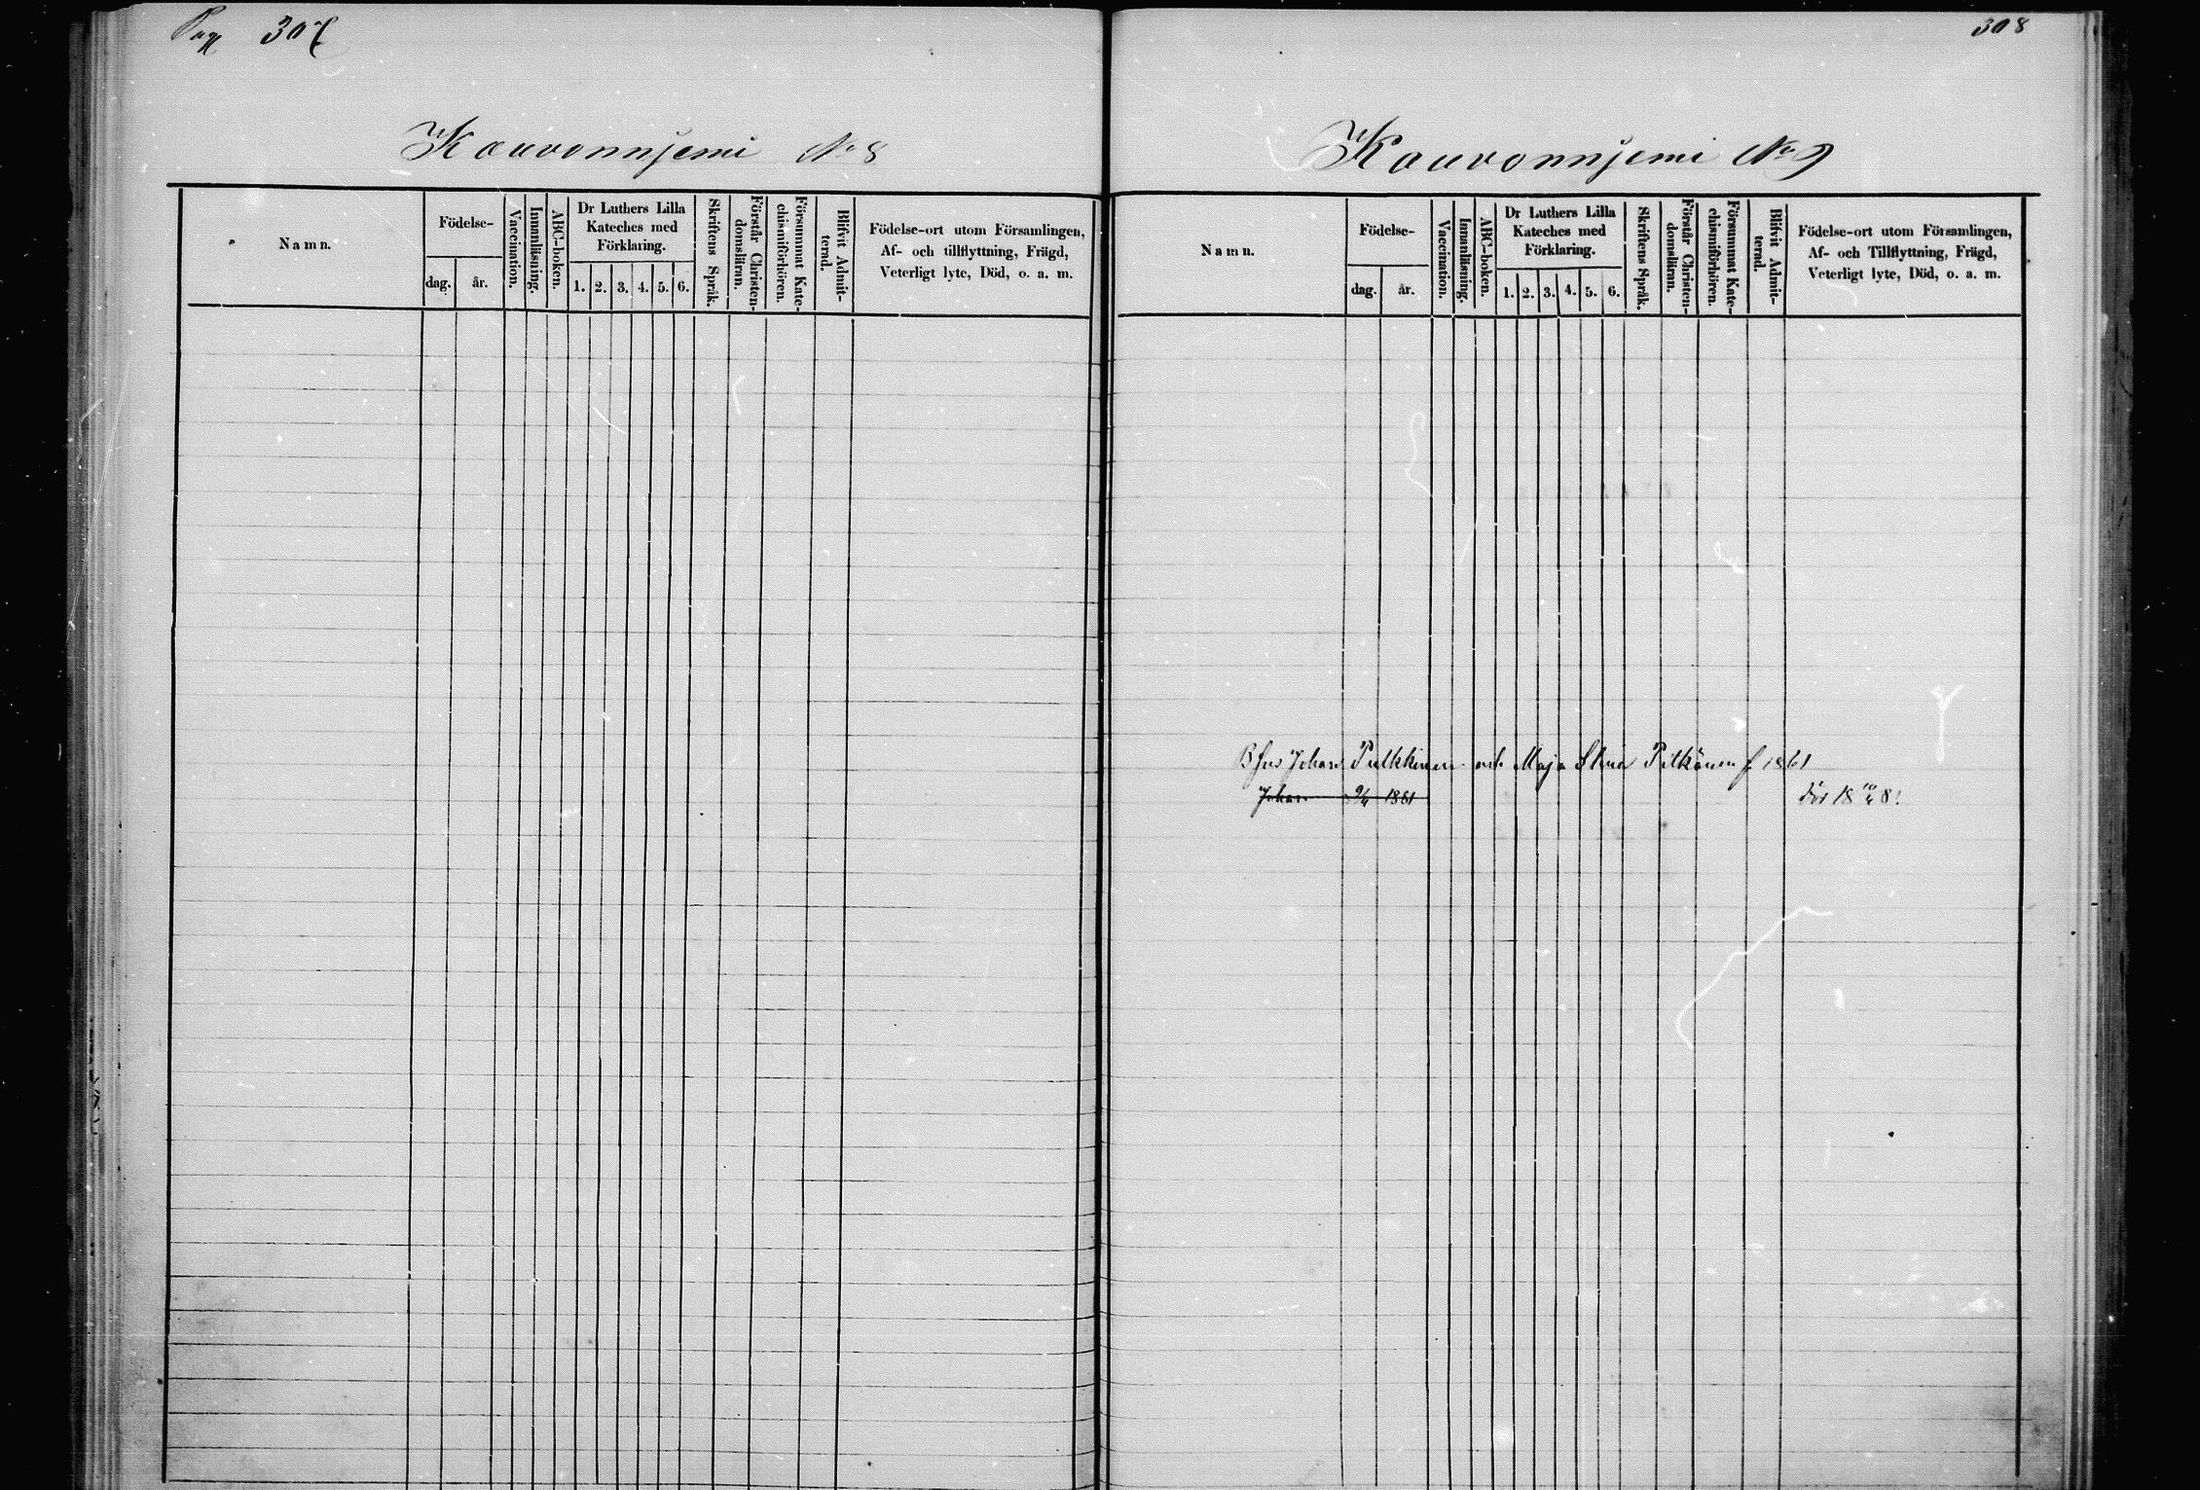 Pag 307
Kouvonnjemi No 8
Namn.
Födelse-
dag.
år.
Vaccination.
Innanläsning.
ABC-boken.
Dr Luthers Lilla
Kateches med
Förklaring.
1. 2. 3. 4. 5. 6.
Skriftens Språk.
Förstår Christen-
domsläran.
Försummat Kate-
chismiförhören.
Blifvit Admit-
terad.
Födelse-ort utom Församlingen,
Af- och tillflyttning, Frägd,
Veterligt lyte, Död, o. a. m.
308
Kouvonnjemi No 9
Namn.
Födelse-
dag.
år.
Vaccination.
Innanläsning.
ABC-boken.
Dr Luthers Lilla
Kateches med
Förklaring.
1. 2. 3. 4. 5. 6.
Skriftens Språk.
Förstår Christen-
domsläran.
Försummat Kate-
chismiförhören.
Blifvit Admit-
terad.
Födelse-ort utom Församlingen,
Af- och Tillflyttning, Frägd,
Veterligt lyte, Död, o. a. m.
Johan Pulkkinen och Maja Stina Pitkänen f 1861
Johan 1881